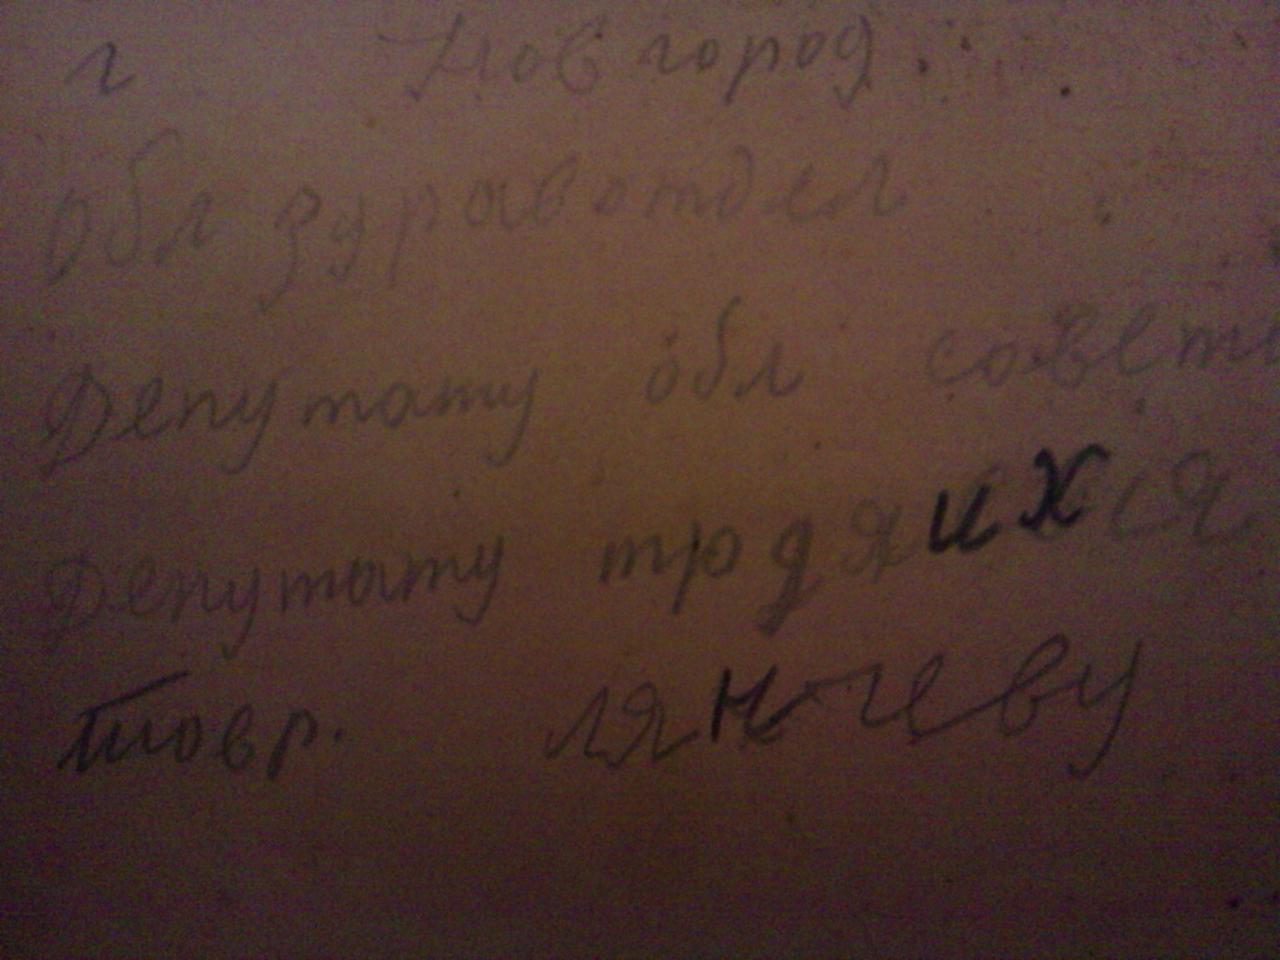 г Новгород.
Обл зуравотдел
Депутату обл совет
Депутату трдяихся
товр. Лянчеву